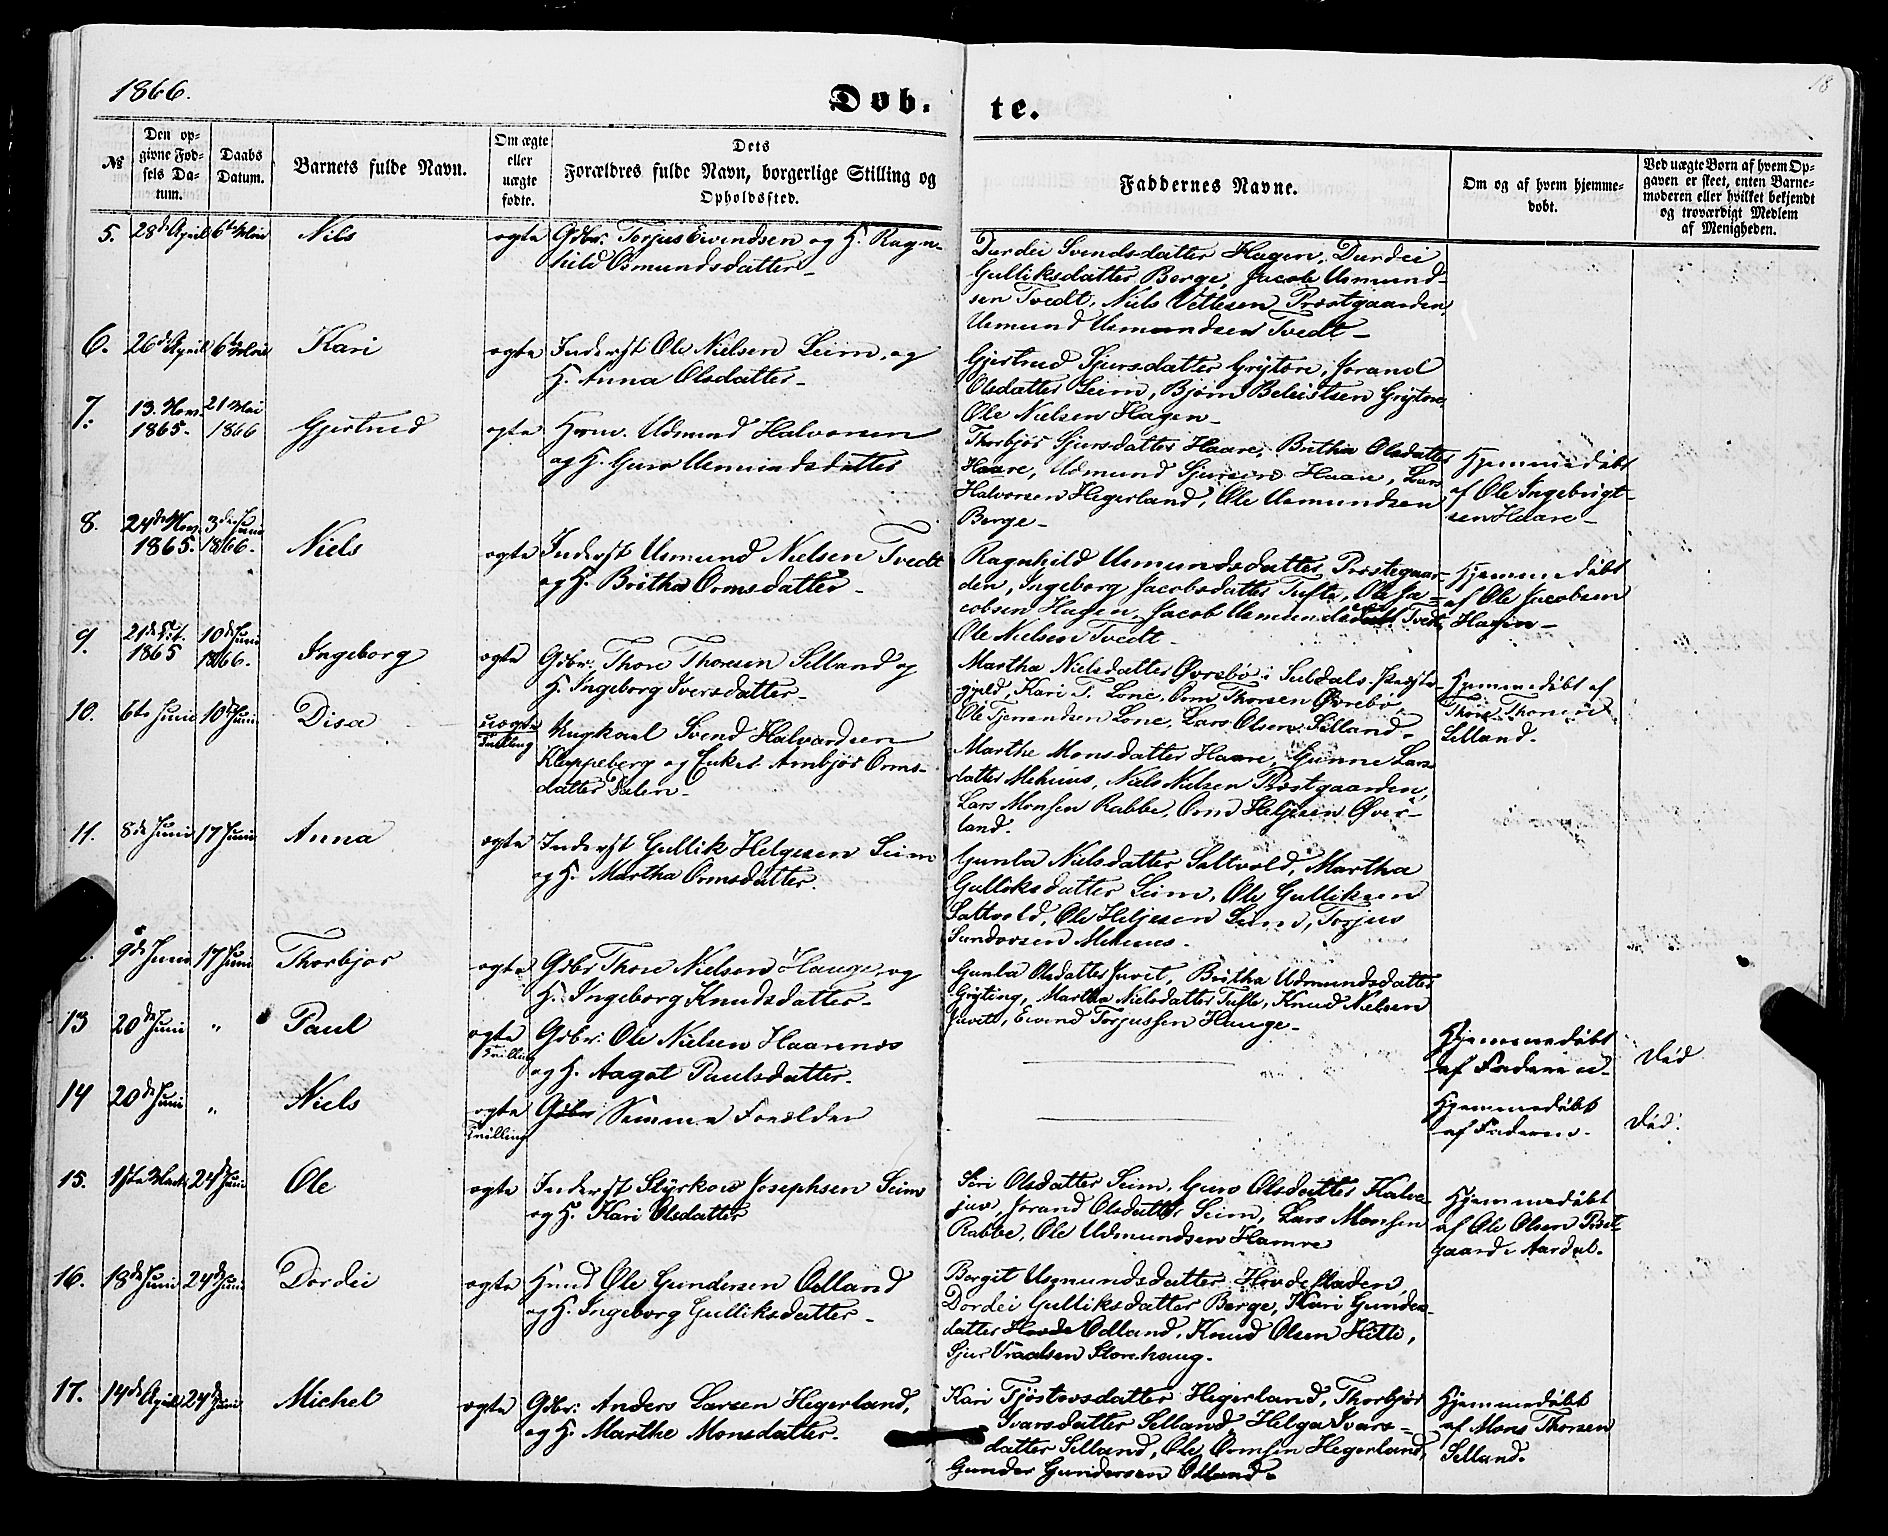 1866.
18
Døb.
te.
№
Den op-
givne Fød-
sels Da-
tum.
Daabs
Datum.
Barnets fulde Navn.
Om ægte
eller
uægte
fødte.
Dets
Forældres fulde Navn, borgerlige Stilling og
Opholdssted.
Faddernes Navne.
Om og af hvem hjemme-
døbt.
Ved uægte Børn af hvem Op-
gaven er skeet, enten Barne-
moderen eller hvilket bekjendt
og troværdigt Medlem
af Menigheden.
5. 28de April 6te Mai Nils ægte Gdbr. Torjus Eivindsen og H. Ragn-
hild Osmundsdatter
Durdei Svendsdatter Hagen, Durdei
Gulliksdatter Berge, Jacob Usmund-
sen Tvedt, Niels Vetlesen Præstgaarden,
Usmund Usmundsen Tvedt
6. 26de April 6te Mai Kari ægte Inderst Ole Nielsen Seim, og
H. Anna Olsdatter
Gjertrud Sjursdatter Grytøre, Jorand
Olsdatter Seim, Bjørn Grytøre,
Ole Nielsen Hagen
7. 13. Nov. 1865. 21 Mai 1866 Gjertrud ægte Udmund Halvorsen
og H. Guro Usmundsdatter
Thorbjør Sjursdatter Haare, Britha Olsdatter
Haare, Udmund Sjursen Haare, Lars
Halvorsen Hegerland, Ole Usmundsen
Berge
Hjemmedøbt
af Ole Ingebrigt-
sen Haare
8. 24de Nov. 1865. 3de Juni 1866. Niels ægte Inderst Usmund Nielsen Tvedt
og H. Britha Ormsdatter
Ragnhild Usmundsdatter Præstegaar-
den, Ingeborg Jacobsdatter Tufte, Ole Ja-
cobsen Hagen, Jacob Tvedt,
Ole Nielsen Tvedt
Hjemmedøbt
af Ole Jacobsen
Hagen
9. 21de 1865 10de Juni 1866. Ingeborg ægte Gdbr. Thore Thoresen Selland og
H. Ingeborg Iversdatter
Martha Nielsdatter Øvrebø i Suldals Præste-
gjeld, Kari T. Lone, Orm Thorsen Øvrebø,
Ole Lone, Lars Olsen Selland
Hjemmedøbt af
Thore Thoresen
Selland.
10. 6te Juni 10de Juni Disa uægte
Tvilling
Ungkarl Svend Halvardsen
Kleppeberg og Enken Ambjør Orms-
datter
Marthe Monsdatter Haare, Gunne Lars-
datter Mehuus, Niels Nielsen Præstgaarden,
Lars Monsen Rabbe, Orm Helgesen Øver-
land.
11. 8de Juni 17 Juni Anna ægte Inderst Gullik Helgesen Seim
og H. Martha Ormsdatter.
Gunla Nielsdatter Saltvold, Martha
Gulliksdatter Seim, Ole Gulliksen
Saltvold, Ole Helgesen Seim, Torjus
Mehuus
9de Juni 17 Juni Thorbjør ægte Gdbr Thore Nielsen Hauge, og
H. Ingeborg Knudsdatter
Gunla Olsdatter Juvet, Britha Udmundsdatter
Gryting, Martha Nielsdatter Tufte, Knud Nielsen
Juvet, Eivind Torjussen Hauge
13 20de Juni „ Paul ægte
Tvilling
Gdbr. Ole Nielsen Haarenes
og H. Aagot Paulsdatter.
Hjemmedøbt
af Faderen
Død
14 20de Juni „ Niels ægte
Tvilling
Gdbr Samme Forældre
Hjemmedøbt
af Faderen
Død.
15. 1ste Marts 24de Juni Ole ægte Inderst Styrkow Josephsen Seim
og H. Kari Olsdatter
Siri Olsdatter Seim, Guro Olsdatter Kalve-
juv, Jorand Olsdatter Seim, Lars Monsen
Rabbe, Ole Udmundsen Hamre
Hjemmedøbt
af Ole Olsen Præst-
gaard i Aardal.
16. 18de Juni 24de Juni Dordei ægte Hmd Ole Gundersen Odland
og H. Ingeborg Gulliksdatter
Borgit Usmundsdatter Hovdestaden,
Dordei Gulliksdatter Berge, Kari Gunders-
datter Hovde Odland, Knud Olsen Hette,
Sjur Vraalsen Storehaug.
17. 14de April 24de Juni Michel ægte Gdbr. Anders Larsen Hegerland,
og H. Marthe Monsdatter.
Kari Tjøstovsdatter Hegerland, Thorbjør
Ivarsdatter Selland, Helga Ivars-
datter Selland, Ole Ormsen Hegerland,
Gunder Gundersen Odland
Hjemmedøbt
af Mons Thorsen
Selland.